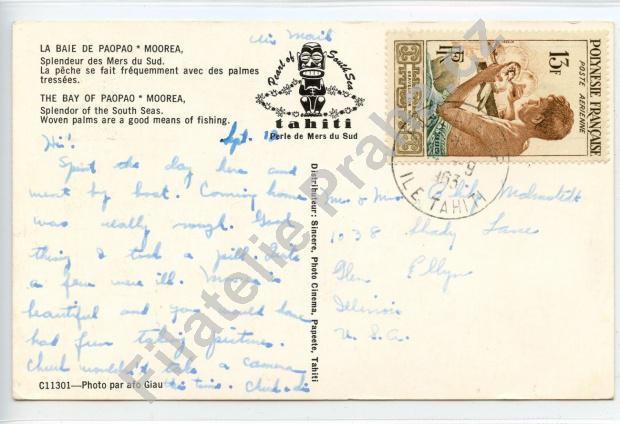 Air Mail
LA BAIE DE PAOPAO * MOOREA,
Splendeur des Mers du Sud.
La pêche se fait fréquemment avec des palmes
tressées.
THE BAY OF PAOPAO * MOOREA,
Splendor of the South Seas.
Woven palms are a good means of fishing.
Pearl of South Sea
tahiti
Perle de Mers du Sud
13F
POLYNESIE FRANÇAISE
POSTE AERIENNE
ILE TAHITI
Sept.
Hi!
Spent the day here and
went by boat. Coming home
was really rough. Good
thing I took a pill. Lots
a few were ill. Moorea is
beautiful and you would have
had fun taking pictures.
Chuck wouldn't take a camera
this time.
Mr & Mrs
1038 Shady Lane
Glen Ellyn
Illinois
U.S.A.
Distributeur: Sincere, Photo Cinema, Papeete, Tahiti
C11301—Photo par afo Giau
Filatelie Praha.cz